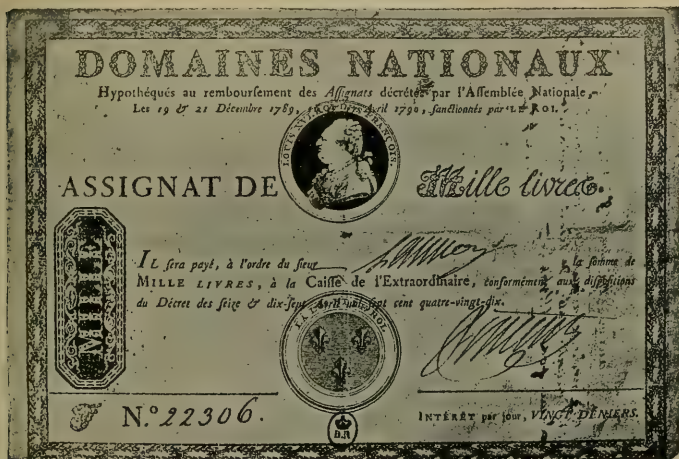 DOMAINES NATIONAUX
Hypothéqués au remboursement des Assignats décrétés par l'Assemblée Nationale,
Les 19 & 21 Décembre 1789, Avril 1790, sanctionnés par LE ROI.
LOUIS XVI ROI DES FRANÇOIS.
ASSIGNAT DE Mille livres.
MILLE
IL sera payé, à l'ordre du sieur la somme de
MILLE LIVRES, à la Caisse de l'Extraordinaire, conformément aux dispositions
du Décret des seize & dix-sept Avril mil sept cent quatre-vingt-dix.
LA LOI ROI.
N.º 22306.
INTÉRÊT par jour, VINGT DENIERS.
B.R